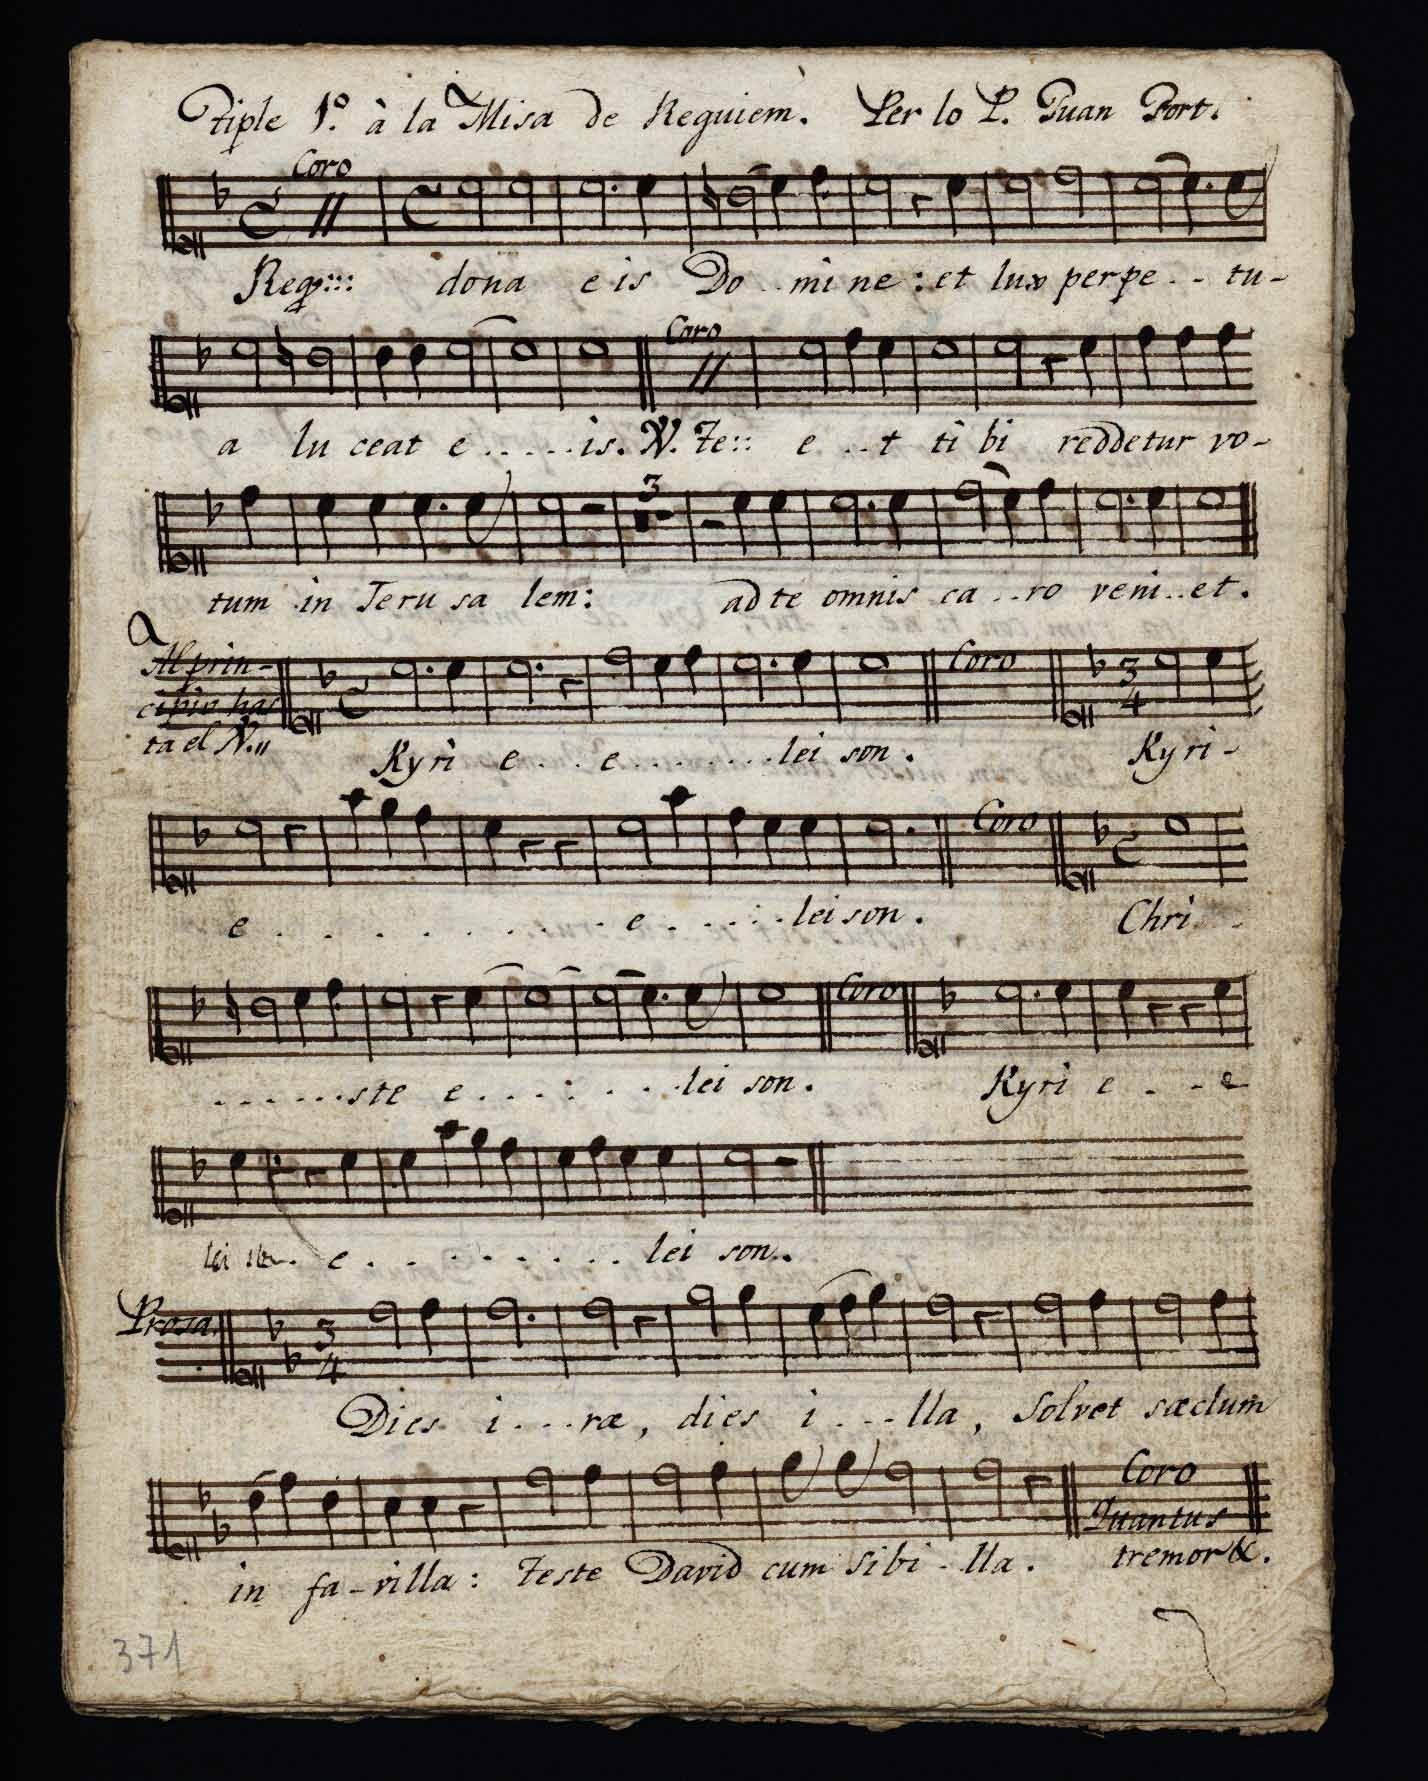 Tiple 1.º à la Misa de Requiem. Per lo P. Juan Fort.
Coro
Req:::: dona eis Do..mi ne: et lux perpe..tu-
Coro
a lu ceat e.....is. V. Te:: e...t ti bi reddetur vo-
3
tum in Jeru sa lem: ad te omnis ca..ro veni..et.
Al prin-
cipio has
ta el V.
Coro
3
4
Kyri e...e.......lei son. Kyri-
Coro
e..........e.....lei son. Chri..
Coro
......ste e.......lei son. Kyri e..-e
lei e.........lei son.
Prosa.
3
4
Dies i...ræ, dies i...lla, Solvet sæclum
Coro
Quantus
tremor &.
in fa-villa: Teste David cum Sibi-lla.
371